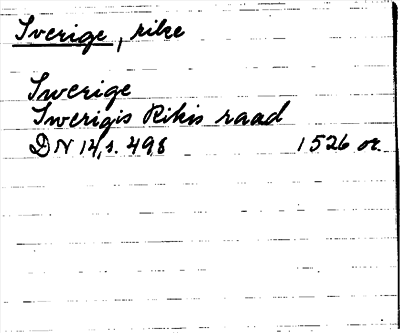 Sverige, rike
Swerige
Swerigis Rikis raad
DN 14, s. 498 1526 or.